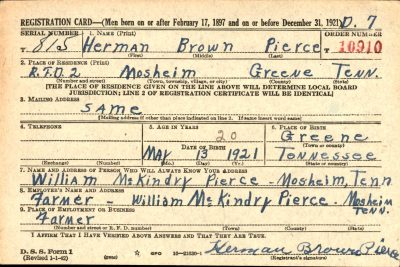 REGISTRATION CARD—(Men born on or after February 17, 1897 and on or before December 31, 1921) D. 7
SERIAL NUMBER 1. NAME (Print) ORDER NUMBER
T 815 Herman Brown Pierce 10910
(First) (Middle) (Last)
2. PLACE OF RESIDENCE (Print)
R.F.D.2 Mosheim Greene Tenn.
(Number and street) (Town, township, village, or city) (County) (State)
[THE PLACE OF RESIDENCE GIVEN ON THE LINE ABOVE WILL DETERMINE LOCAL BOARD
JURISDICTION; LINE 2 OF REGISTRATION CERTIFICATE WILL BE IDENTICAL]
3. MAILING ADDRESS
same
[Mailing address if other than place indicated on line 2. If same insert word same]
4. TELEPHONE 5. AGE IN YEARS 6. PLACE OF BIRTH
20 Greene
DATE OF BIRTH (Town or county)
May 13 1921 Tonnessee
(Exchange) (Number) (Mo.) (Day) (Yr.) (State or country)
7. NAME AND ADDRESS OF PERSON WHO WILL ALWAYS KNOW YOUR ADDRESS
William McKindry Pierce - Mosheim, Tenn
8. EMPLOYER'S NAME AND ADDRESS
Farmer - William McKindry Pierce - Mosheim Tenn.
9. PLACE OF EMPLOYMENT OR BUSINESS
Farmer
(Number and street or R. F. D. number) (Town) (County) (State)
I AFFIRM THAT I HAVE VERIFIED ABOVE ANSWERS AND THAT THEY ARE TRUE.
D. S. S. Form 1 GPO 16—21630-1 Herman Brown Pierce
(Revised 1-1-42) (over) (Registrant's signature)